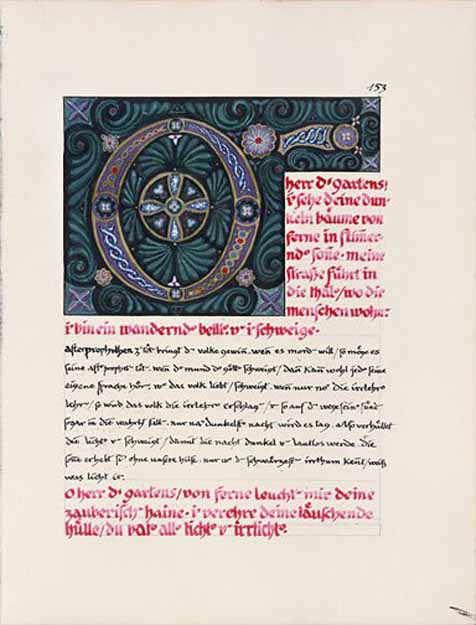 153
O herr d' gartens/
i' sehe deine dun-
keln bäume von
ferne in schimer-
nd' sone · meine
straße führt in
die thäl'/wo die
menschen wohn' ·
i' bin ein wandernd' bettl' · v' i' schweige ·
afterprophethen z' töt' bringt d' volke gewin. wen es mord will/so möge es
seine aftproph' töt'. wen d' mund d' gött' schweigt/dan kan wohl jed' seine
eigene sprache hör'. w' das volk liebt/schweigt. wen nur no' die irrlehr'
lehr'/so wird das volk die irrlehr' erschlag' / v' so auf d' wege sein' sünd'
sogar in die wahrh' fall'. nur na' dunkelst' nacht wird es tag. also verhüllet
die licht' v' schweigt/damit die nacht dunkel v' lautlos werde. die
sone erhebt si' ohne unsere hilfe. nur w' d' schwärzest' irrthum kent/weiß
was licht ist.
O herr d' gartens/von ferne leucht' mir deine
zauberisch' haine · i' verehre deine täuschende
hülle/du vat' all' licht' v' irrlicht' ·